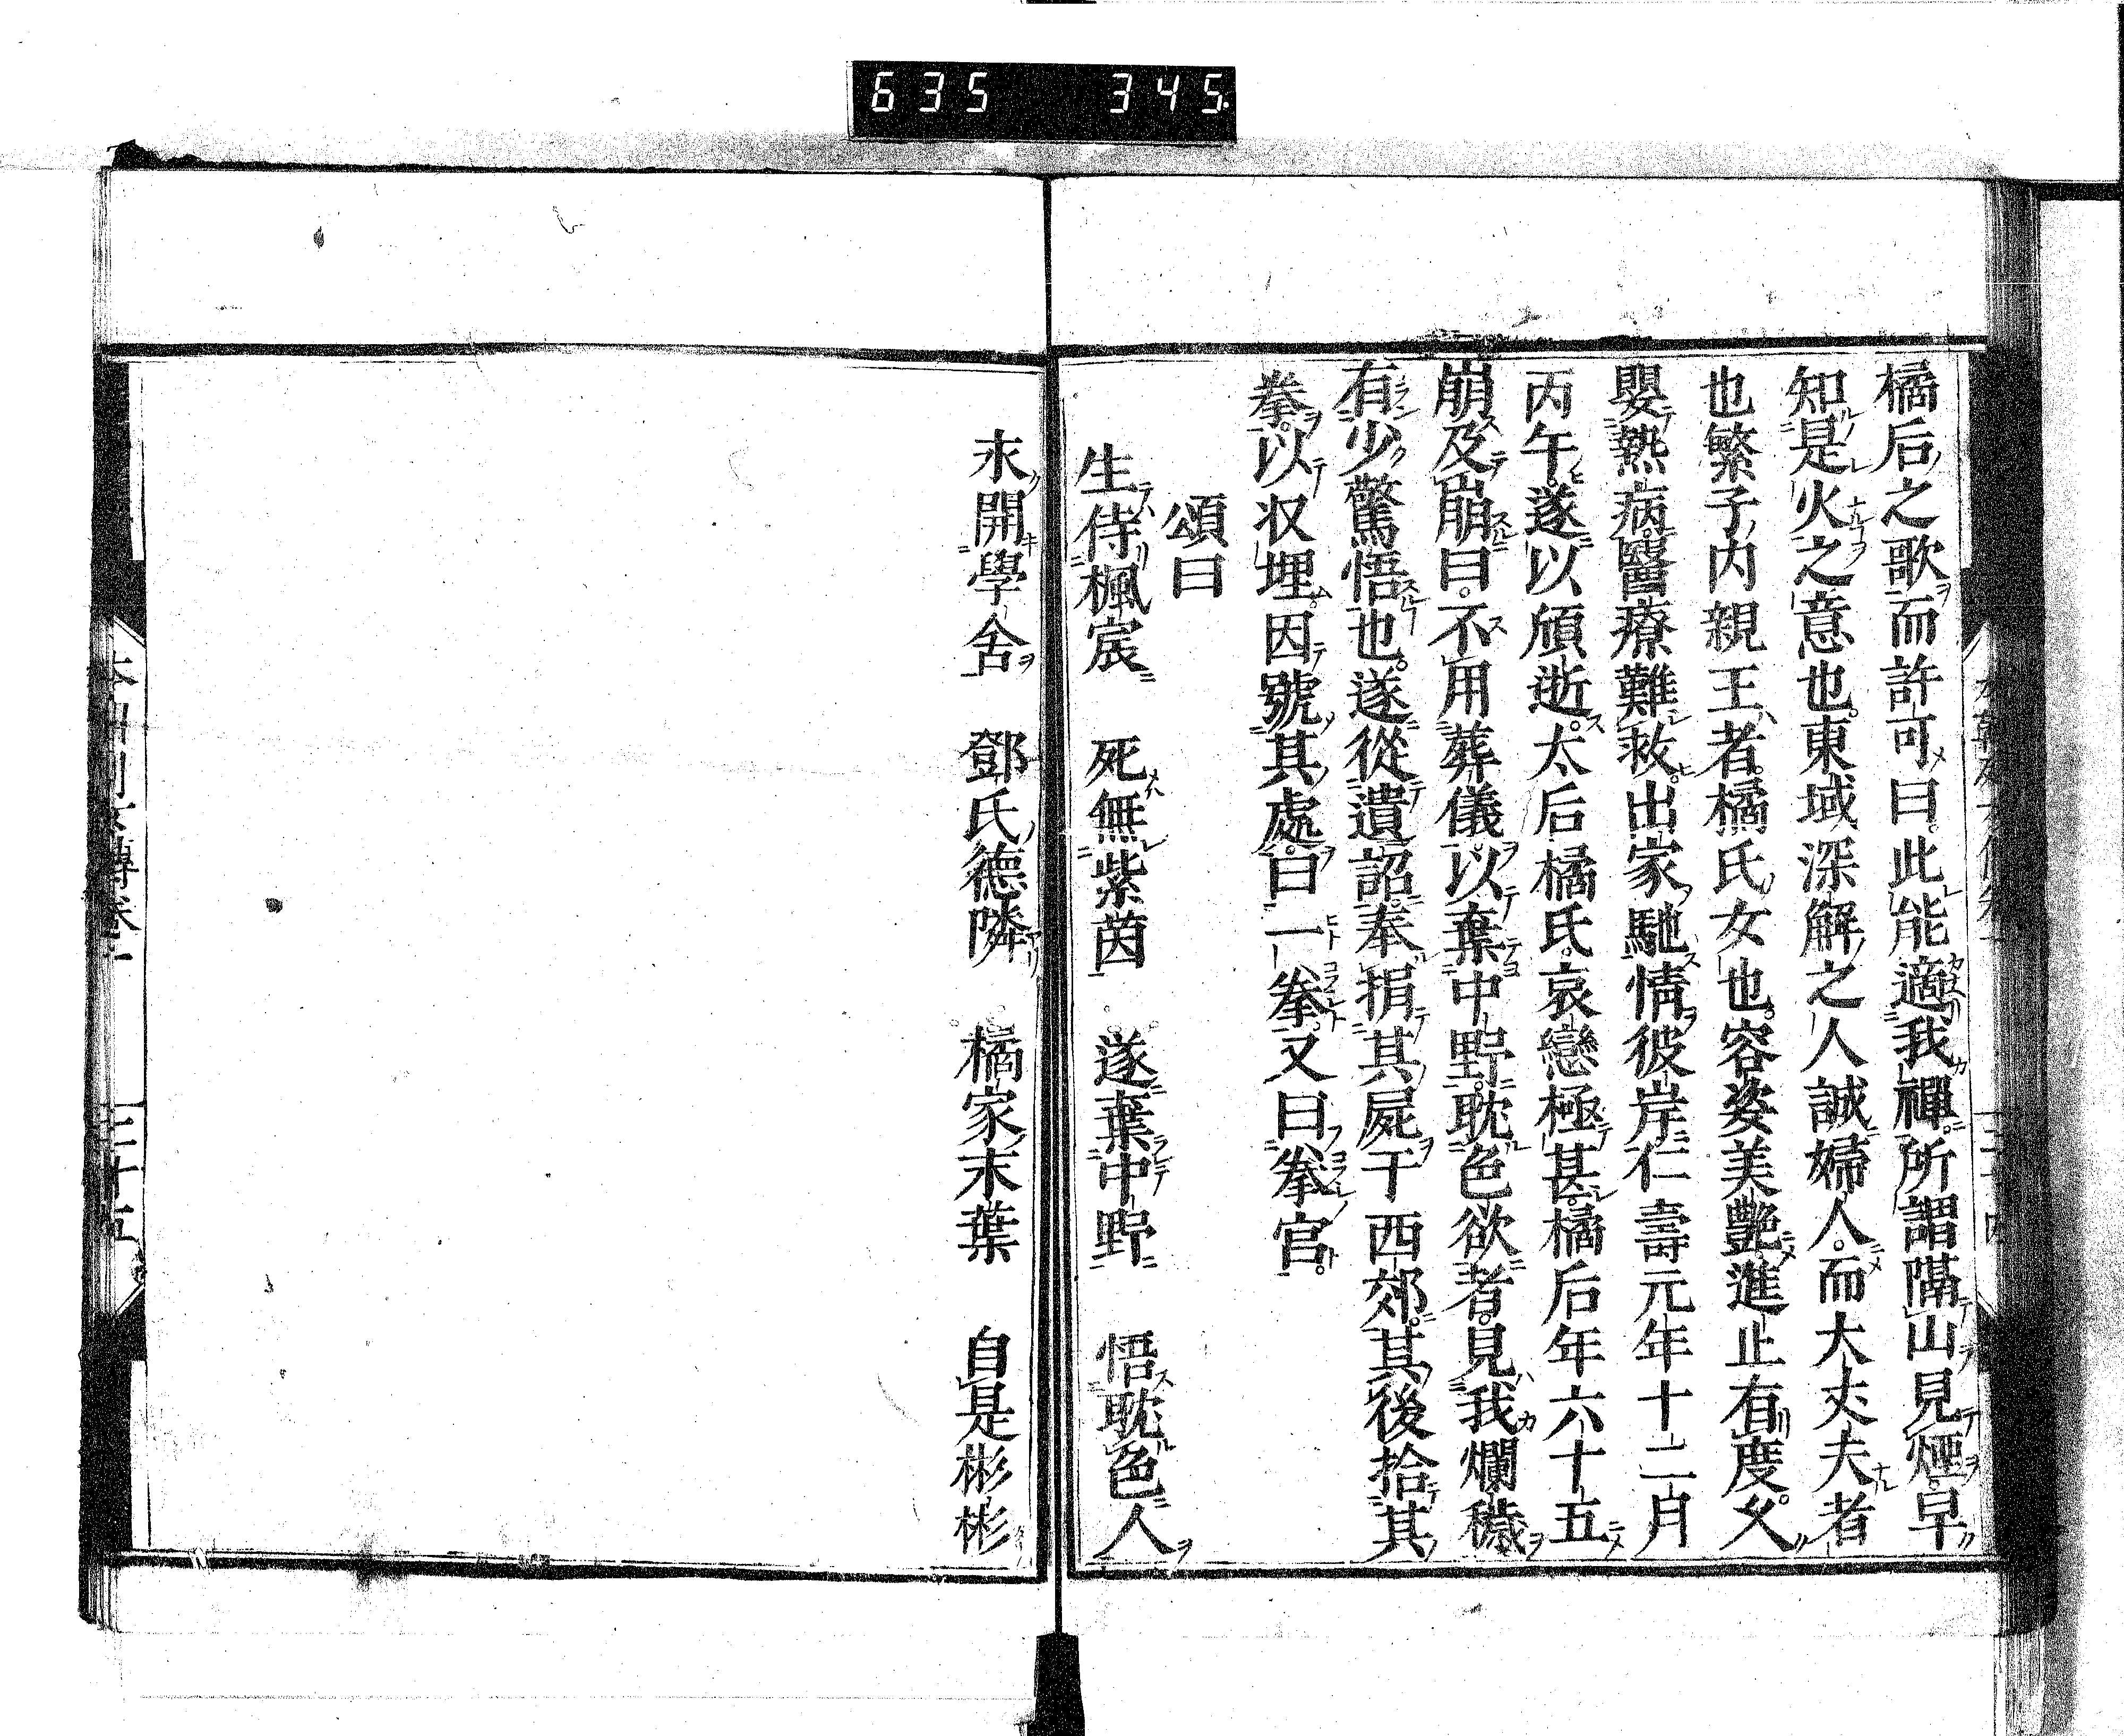 635 345
橘后之歌而許可曰此能適我禪所謂隔山見煙早
知是火之意也東域深解之人誠婦人而大丈夫者
也繁子内親王者橘氏女也容姿美艷進止有度父
嬰熱病醫療難救出家馳情彼岸仁壽元年十二月
丙午遂以頎逝太后橘氏哀戀極甚橘后年六十五
崩及崩曰不用葬儀以棄中野耽色欲者見我爛穢
有少驚悟也遂從遺詔奉捐其屍于西郊其後拾其
拳以収埋因號其處曰一拳又曰拳宮
頌曰
生侍楓宸 死無紫茵 遂棄中野 悟耽色人
永開學舍 鄧氏德隣 橘家末葉 自是彬彬